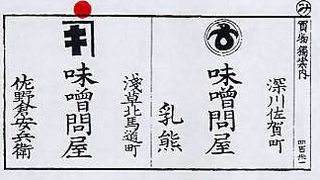 み
買物獨案内
四百廿一
深川佐賀町
味噌問屋
乳熊
淺草北馬道町
味噌問屋
佐野倉安兵衛